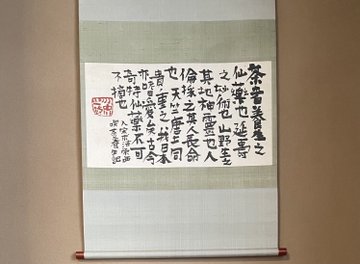 茶者養生之
仙藥也延壽
之妙術也山野生之
其地神靈也人
倫採之其人長命
也天竺唐土同
貴重之我日本
亦嗜愛矣古今
奇特仙藥不可
不摘也
喫茶養生記